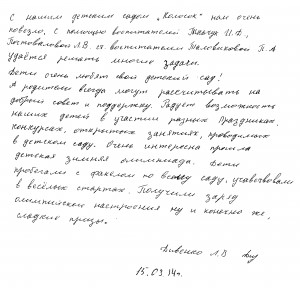 С нашим детским садом „Колосок" нам очень
повезло. С помощью воспитателей Ткачук И.А,
Постоваловой Л.В ст. воспитателем Таловиковой П.А
удаётся решать многие задачи.
Дети очень любят свой детский сад!
А родители всегда могут рассчитывать на
добрый совет и поддержку. Радует возможность
наших детей в участии разных праздниках,
конкурсах, открытых занятиях, проводимых
в детском саду. Очень интересно прошла
детская зимняя олимпиада. Дети
пробегали с факелом по всему саду, участвовали
в весёлых стартах. Получили заряд
олимпийского настроения ну и конечно же,
сладкие призы.
Дивенко Л.В
15.03.14г.